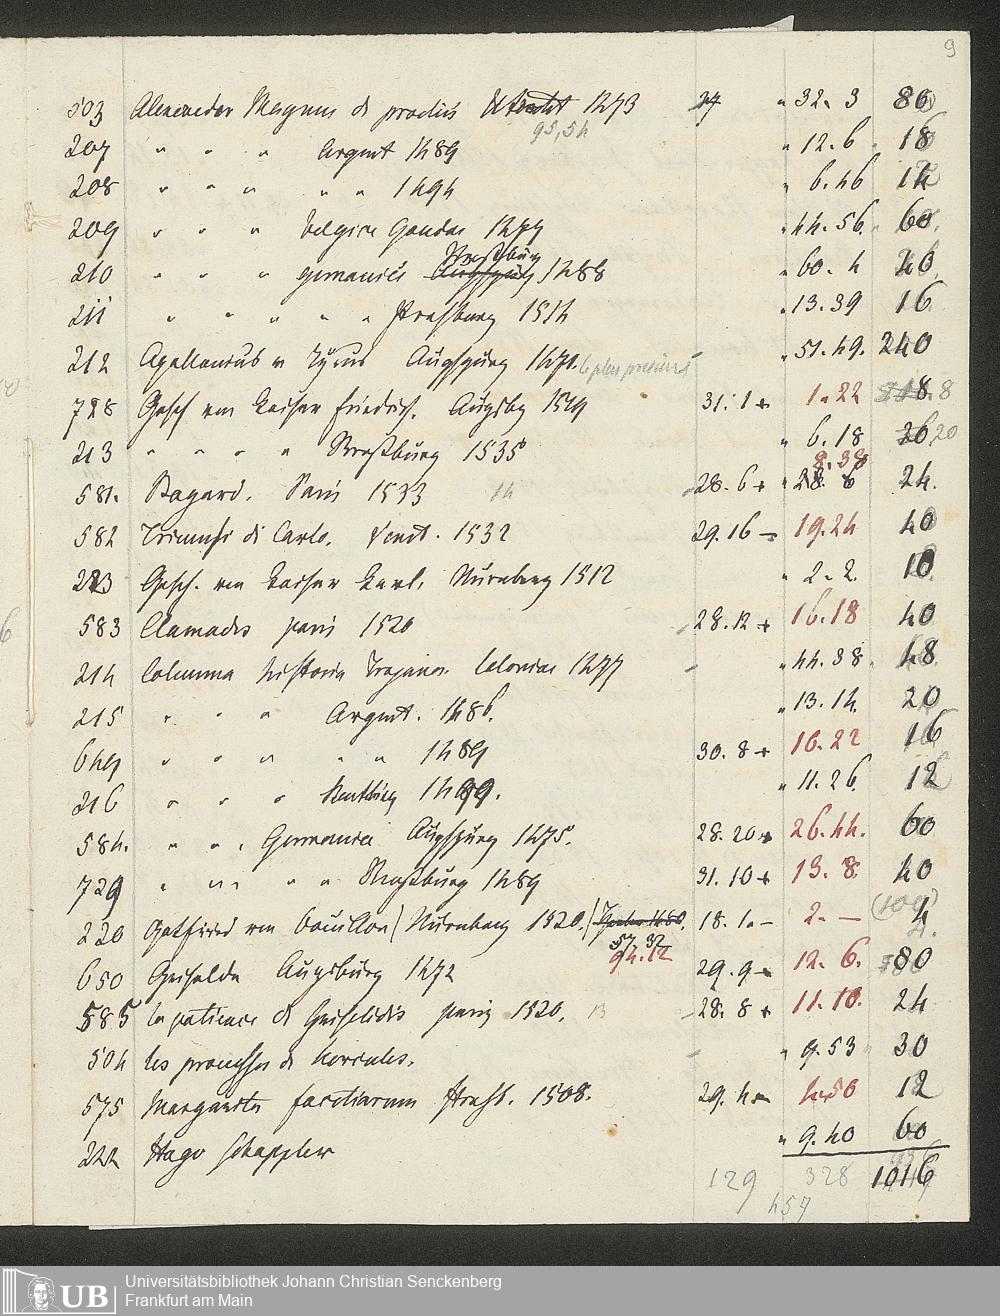 9
503 Alexander Magnus de proeliis Utrecht 1473 " 32. 3 86
95,54
207 " " " Argent 1489 " 12. 6 18
208 " " " " " 1494 " 6. 46 12
209 " " " belgice Goudae 1477 " 44. 56. 60
210 " " " germanice Strassburg 1488 " 60. 4 26
211 " " " " " Strassburg 1514 " 13. 39 16
212 Apollonius v Tyrus Augspurg 1471. " 51. 49. 240
728 Gesch von Kaiser Friedrich. Augsbg 1519 31. 1 + 1. 22 8
213 " " " " Strassburg 1535 " 6. 18 20
581. Bagard. Paris 1533 14 28. 6 + 8. 38 24.
582 Triumfi di Carlo. Venet. 1532 29. 16 – 19. 24 40
213 Gesch. von Kaiser Karl. Nürnberg 1512 " 2. 2. 10
583 Clamades paris 1520 28. 12 + 16. 18 40
214 Columna historia Trojana Coloniae 1477 " 44. 38. 48
215 " " " Argent. 1486. " 13. 14. 20
649 " " " " " 1489 30. 8 + 16. 22 16
216 " " " 1499. " 11. 26. 12
584. " " " Germanice Augspurg 1475. 28. 20 + 26. 44. 60
729 " " " " " Strassburg 1489 31. 10 + 13. 8. 40
220 Gotfried von Bouillon (Nürnberg 1520.) 18. 1. – 2. — 4
57 32
94. 12
650 Griselda Augsburg 1472 29. 9 – 12. 6. 80
585 la patience de Griselidis paris 1520. 13 28. 8 + 11. 10. 24
504 les prouesses de hercules. " 9. 53 30
575 Margarita facetiarum Strasb. 1508. 29. 4 – 4. 50 12
222 Hugo Schappler " 9. 40 60
129 328 1016
457
Universitätsbibliothek Johann Christian Senckenberg
Frankfurt am Main
UB